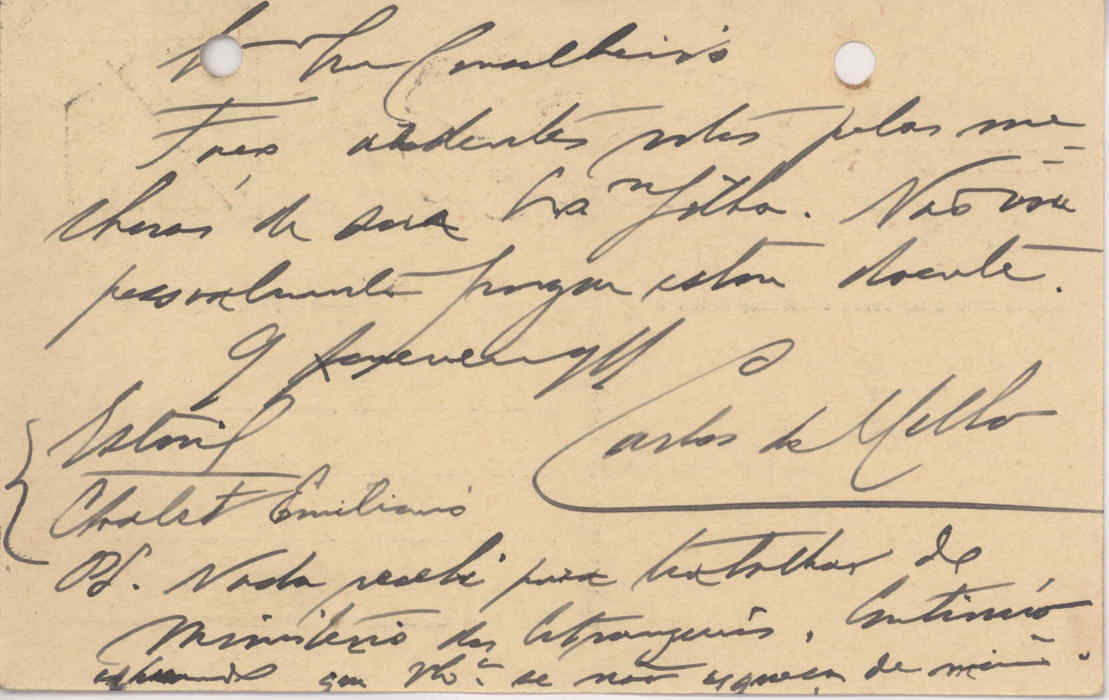 Sr. Conselheiro
Faço ardentes votos pelas me-
lhoras de sua Exa Filha. Não vou
pessoalmente porque estou doente.
Carlos de Mello
Estoril
Chalet Emiliano
PS. Nada recebi para trabalhar do
Ministério dos Estrangeiros. Continuo
esperando que V. Exa. se não esqueça de mim.